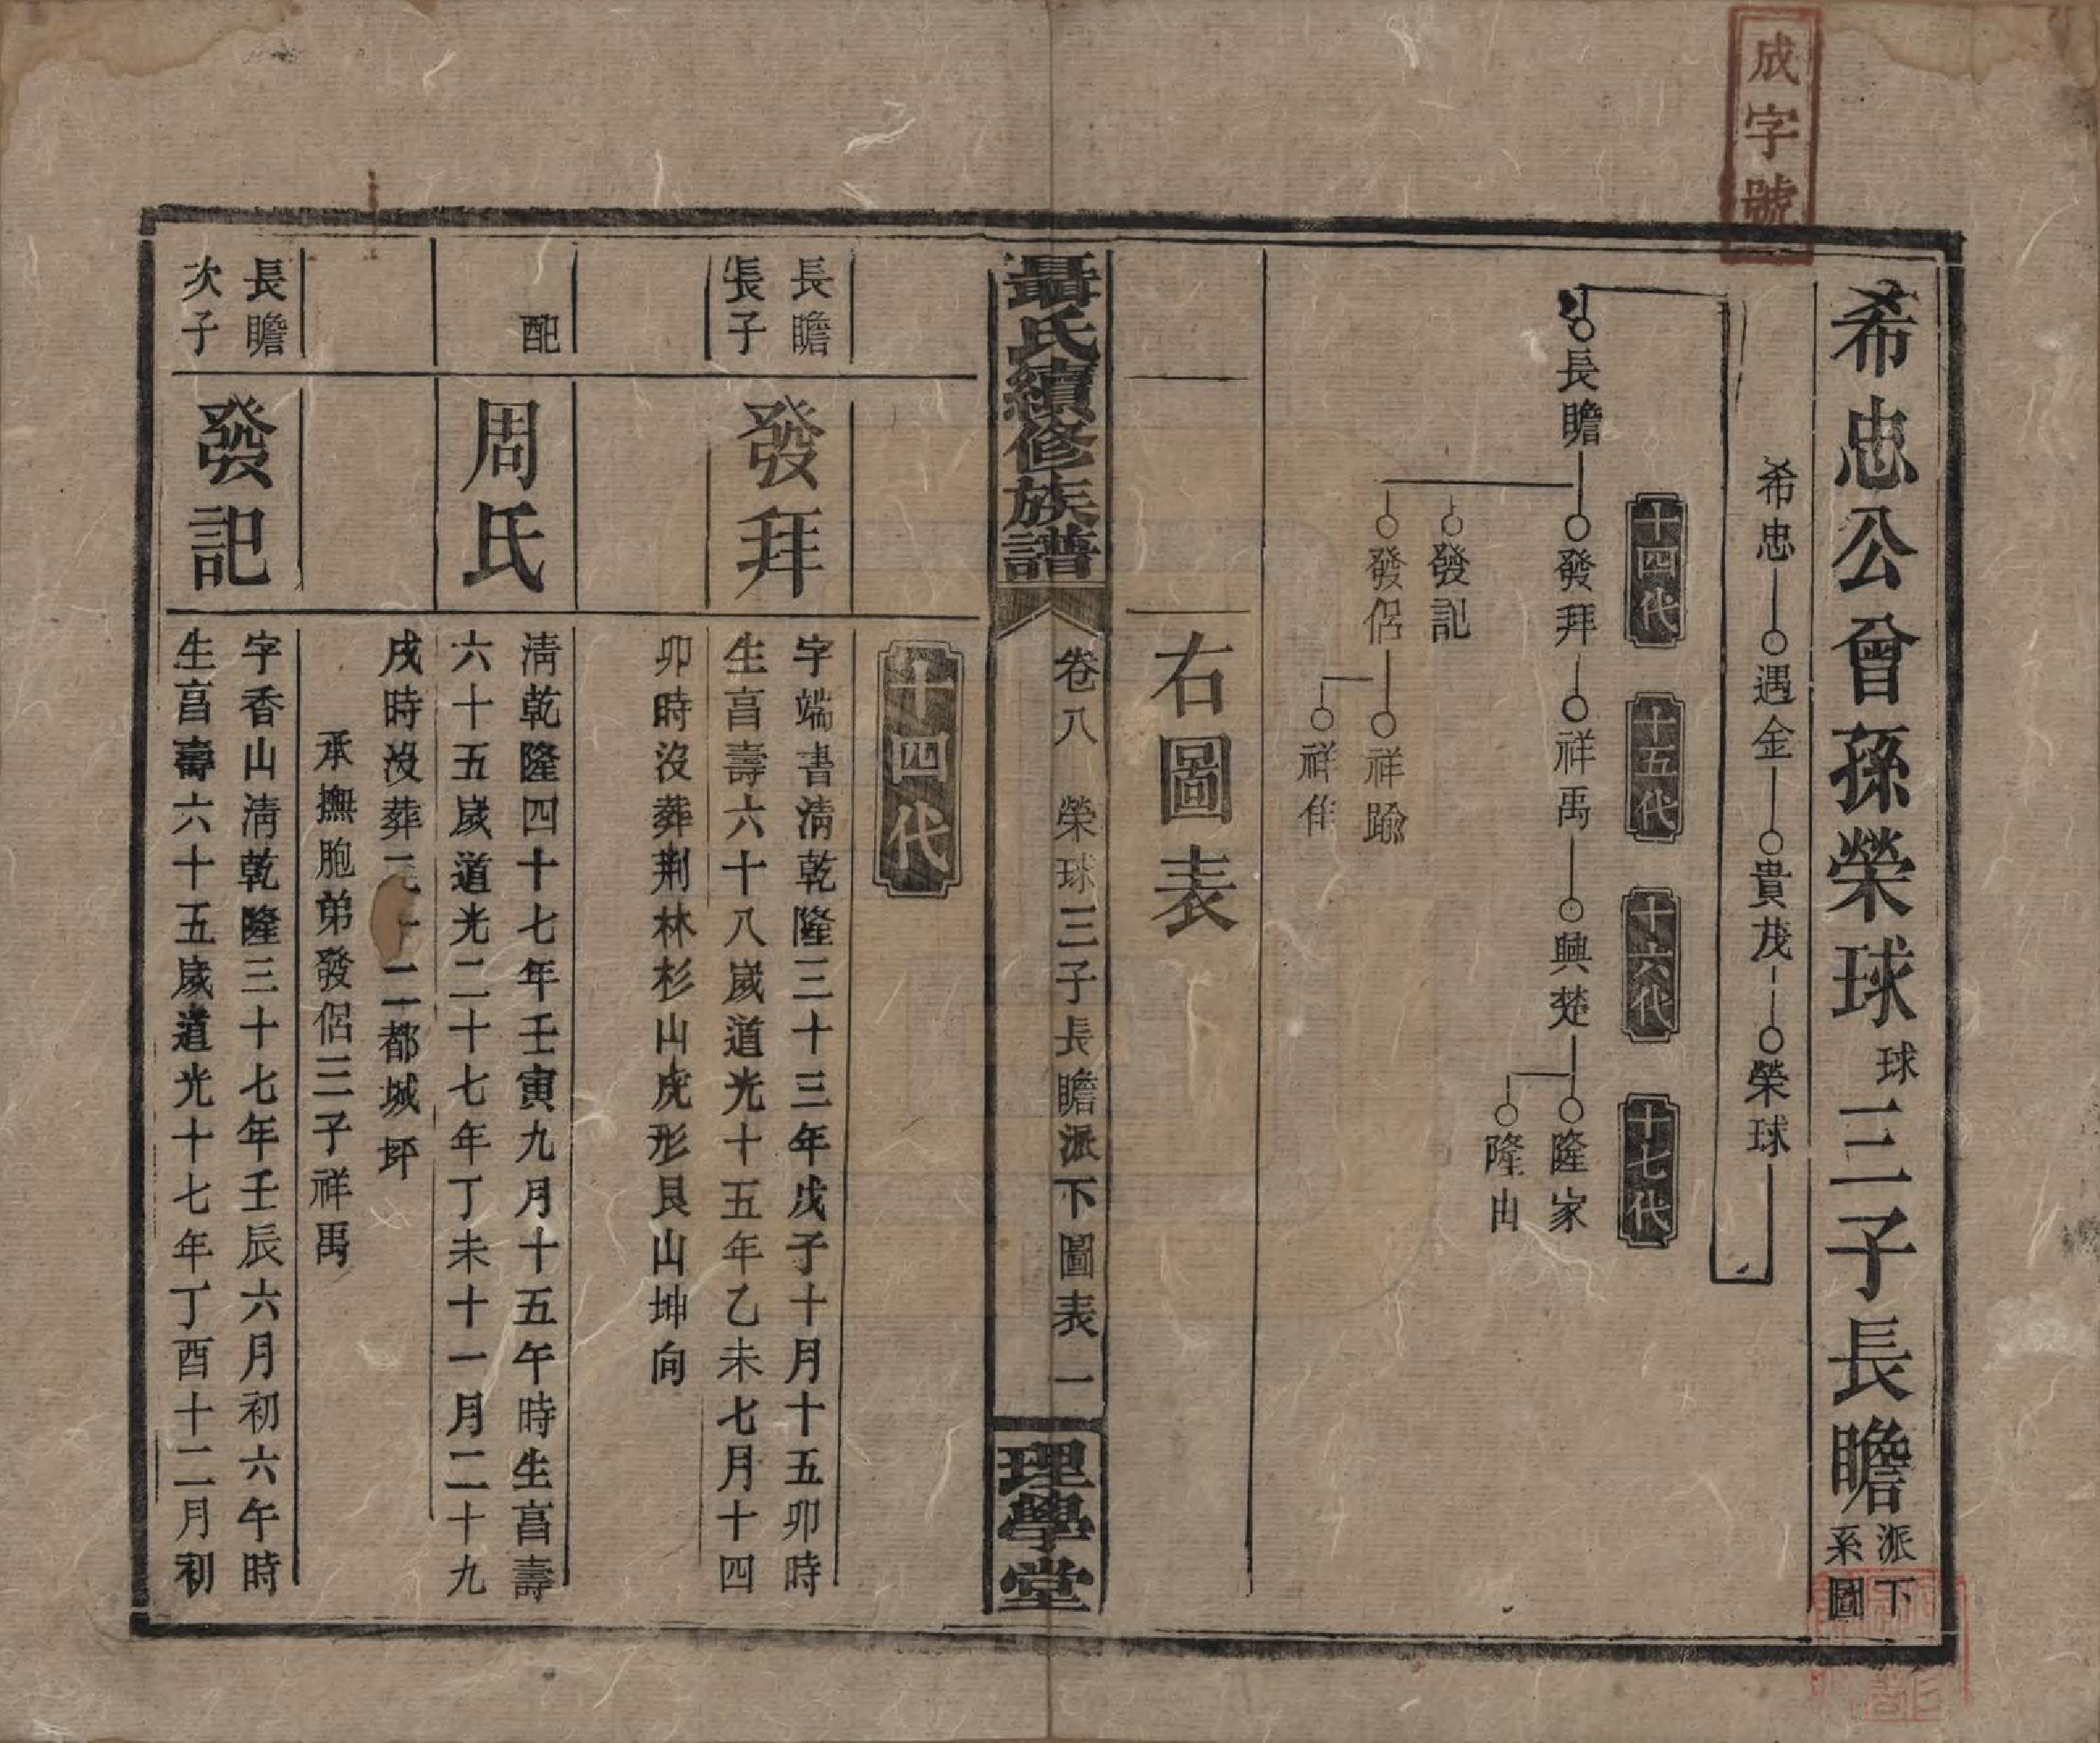 成字號
希忠公曾孫榮球球三子長瞻派下系圖
希忠 遇金 貴茂 榮球
十四代 十五代 十六代 十七代
長瞻 發拜 祥禹 興楚 隆家
隆由
發記
發侶 祥踰
祥作
右圖表
聶氏續修族譜
卷八 榮球三子長瞻派下圖表 一
理學堂
十四代
長瞻
長子
發拜
字端書清乾隆三十三年戊子十月十五卯時
生享壽六十八歲道光十五年乙未七月十四
卯時沒葬荆林杉山虎形艮山坤向
配
周氏
清乾隆四十七年壬寅九月十五午時生享壽
六十五歲道光二十七年丁未十一月二十九
戌時沒葬三十二都城坪
承撫胞弟發侶三子祥禹
長瞻
次子
發記
字香山清乾隆三十七年壬辰六月初六午時
生享壽六十五歲道光十七年丁酉十二月初